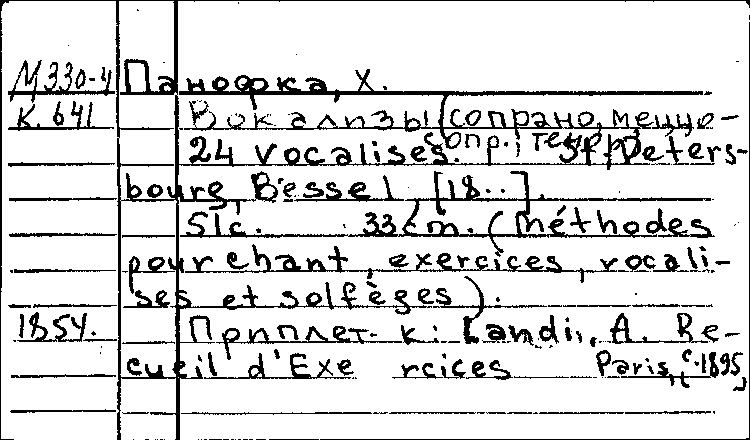 М330-4 Панофка, Х.
К.641 Вокализы (сопрано, меццо-
сопр.; тенор).
24 vocalises. St. Peters-
bourg, Bessel, [18..].
51c. 33 cm. (Méthodes
pour chant, exercices, vocali-
ses et solfèges).
1854. Приплет. к: Landi, A. Re-
cueil d'Exe rcices Paris, [c. 1895]